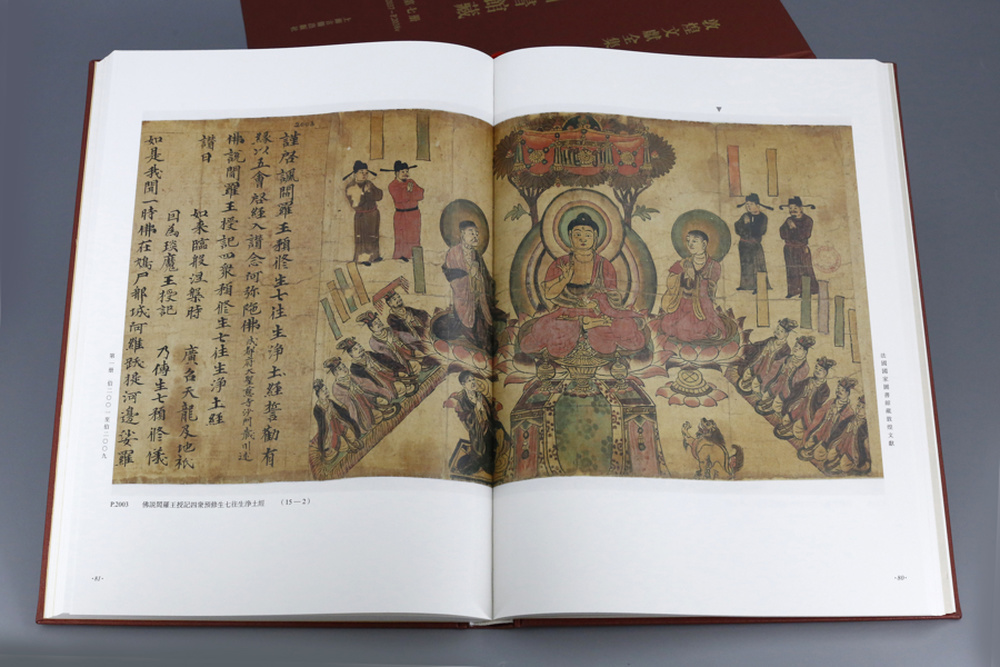 敦煌文獻全集
館藏
上海古籍出版社
法國國家圖書館藏敦煌文獻
謹啓諷閻羅王預修生七往生淨土經誓勸有
緣以五會啓經入讚念阿弥陁佛 成都府大聖慈寺沙門藏川述
佛説閻羅王授記四衆預修生七往生淨土經
讚曰
如来臨般涅槃時 廣召天龍及地祇
因爲琰魔王授記 乃傳生七預修儀
如是我聞一時佛在鳩尸那城阿維跋提河邊娑羅
第一册 伯二〇〇一至伯二〇〇九
P.2003 佛説閻羅王授記四衆預修生七往生淨土經 (15—2)
·81·
·80·